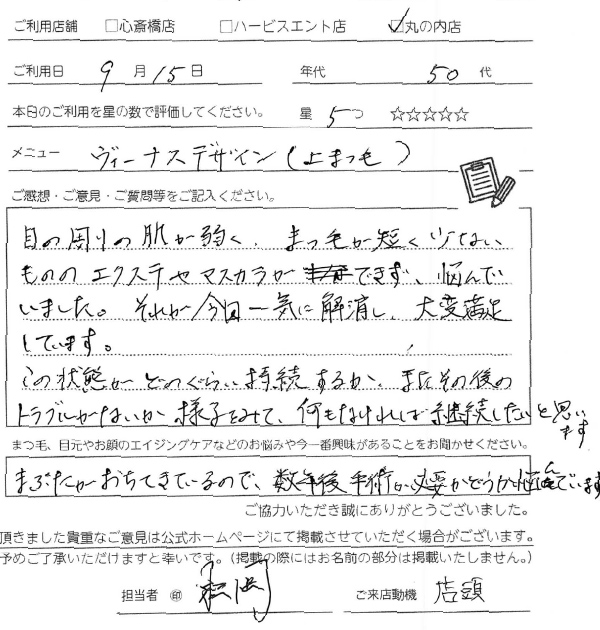 ご利用店舗 □心斎橋店 □ハービスエント店 ☑丸の内店
ご利用日 9月15日 年代 50代
本日のご利用を星の数で評価してください。 星 5つ ☆☆☆☆☆
メニュー ヴィーナスデザイン(上まつも)
ご感想・ご意見・ご質問等をご記入ください。
目の周りの肌が弱く、まつ毛が短く少ない
もののエクステやマスカラができず、悩んで
いました。それが今回一気に解消し、大変満足
しています。
この状態がどのぐらい持続するか、またその後の
トラブルがないか様子をみて、何もなければ継続したいと思い
ます
まつ毛、目元やお顔のエイジングケアなどのお悩みや今一番興味があることをお聞かせください。
まぶたがおちてきているので、数年後手術が必要かどうか悩んでいます
ご協力いただき誠にありがとうございました。
頂きました貴重なご意見は公式ホームページにて掲載させていただく場合がございます。
予めご了承いただけますと幸いです。(掲載の際にはお名前の部分は掲載いたしません。)
担当者 ㊞ 松岡 ご来店動機 店頭